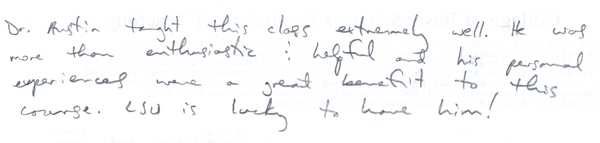 Dr. Austin taught this class extremely well. He was
more than enthusiastic & helpful and his personal
experiences were a great benefit to this
course. LSU is lucky to have him!